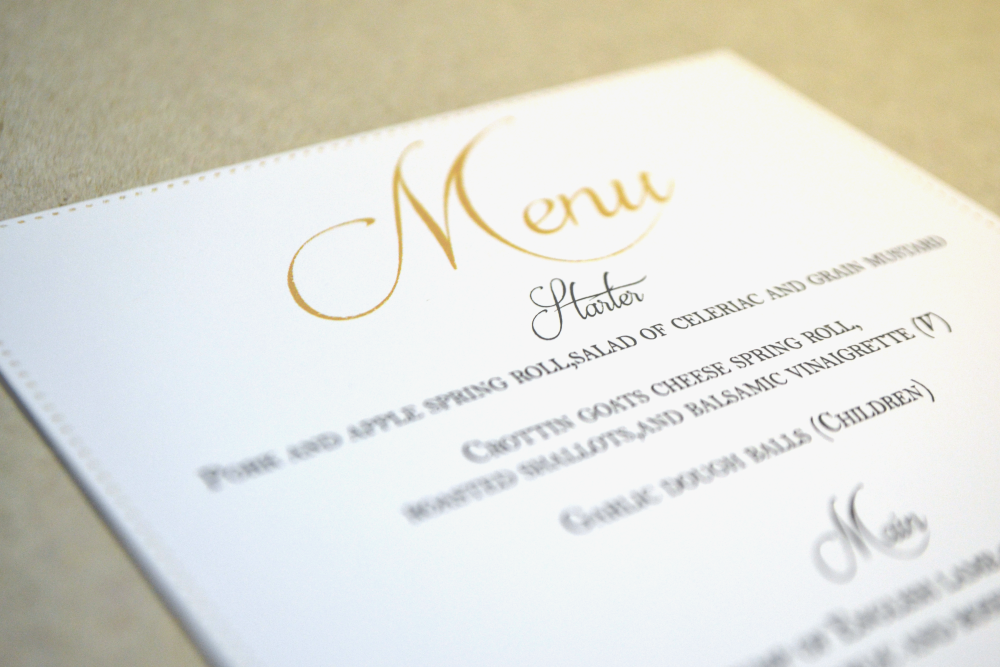 Menu
Starter
Pork and apple spring roll,salad of celeriac and grain mustard
Crottin goats cheese spring roll,
roasted shallots,and balsamic vinaigrette (V)
Garlic dough balls (Children)
Main
of English lamb
and